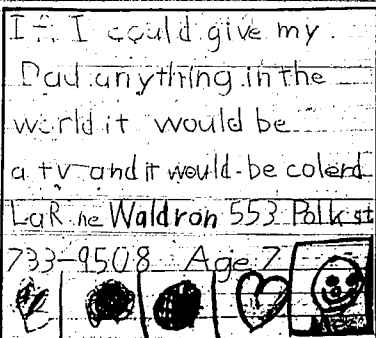 If I could give my
Dad anything in the
world it would be
a tv and it would be colerd
Waldron 553 Polk st
733-9508 Age 7